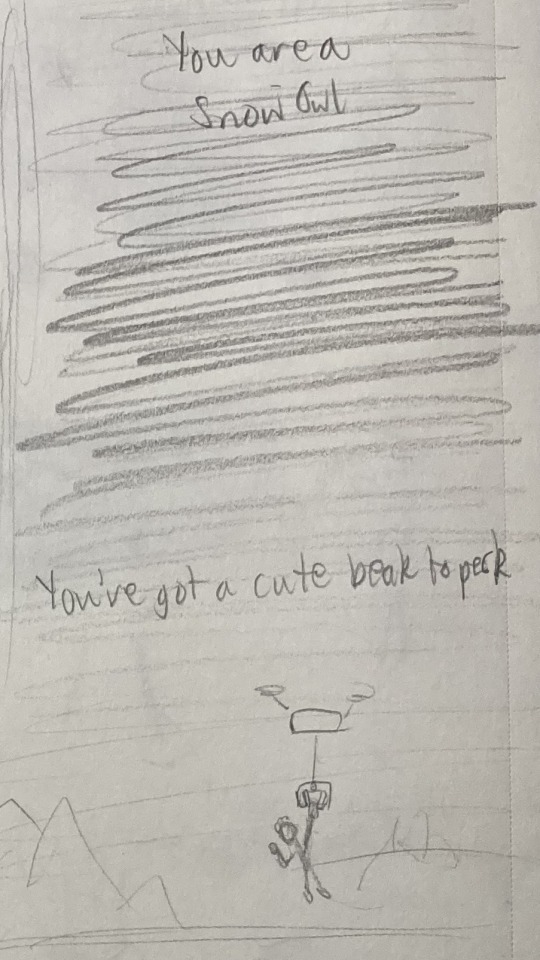 You are a
Snow Owl
You've got a cute beak to perk